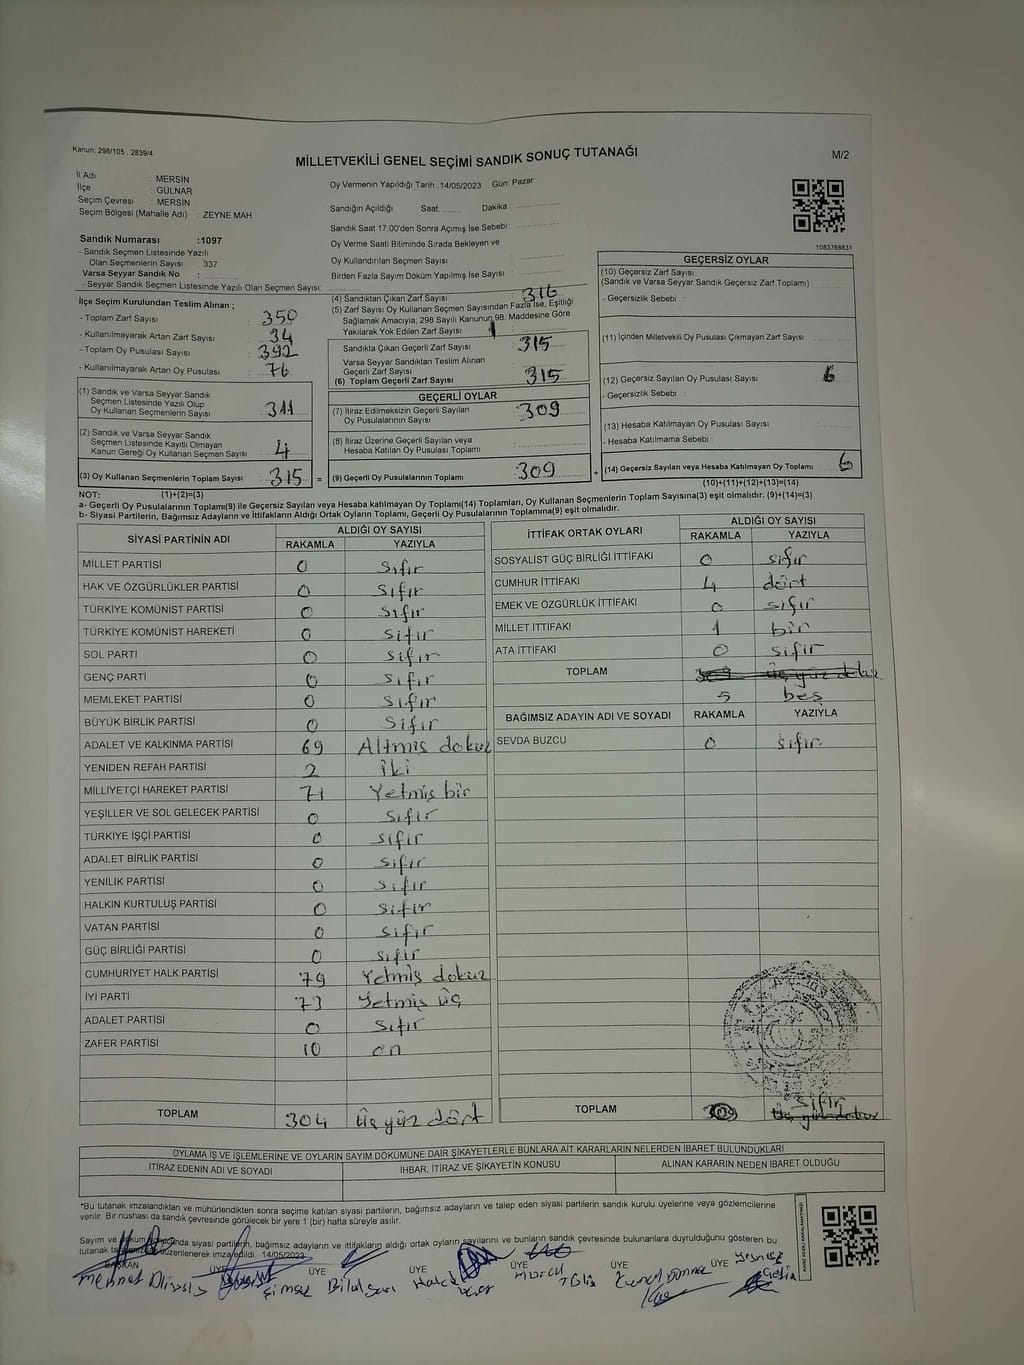 Kanun: 298/105 . 2839/4
MİLLETVEKİLİ GENEL SEÇİMİ SANDIK SONUÇ TUTANAĞI
M/2
İl Adı : MERSİN
İlçe : GÜLNAR
Seçim Çevresi : MERSİN
Seçim Bölgesi (Mahalle Adı) : ZEYNE MAH.
Sandık Numarası :1097
- Sandık Seçmen Listesinde Yazılı
Olan Seçmenlerin Sayısı : 337
Varsa Seyyar Sandık No :
- Seyyar Sandık Seçmen Listesinde Yazılı Olan Seçmen Sayısı:
Oy Vermenin Yapıldığı Tarih :14/05/2023 Gün: Pazar
Sandığın Açıldığı Saat: Dakika
Sandık Saat 17.00'den Sonra Açımış İse Sebebi :
Oy Verme Saati Bitiminde Sırada Bekleyen ve
Oy Kullandırılan Seçmen Sayısı :
Birden Fazla Sayım Döküm Yapılmış İse Sayısı :
1083768831
İlçe Seçim Kurulundan Teslim Alınan ;
- Toplam Zarf Sayısı : 350
- Kullanılmayarak Artan Zarf Sayısı : 34
- Toplam Oy Pusulası Sayısı : 392
- Kullanılmayarak Artan Oy Pusulası : 76
(1) Sandık ve Varsa Seyyar Sandık
Seçmen Listesinde Yazılı Olup
Oy Kullanan Seçmenlerin Sayısı : 311
(2) Sandık ve Varsa Seyyar Sandık
Seçmen Listesinde Kayıtlı Olmayan
Kanun Gereği Oy Kullanan Seçmen Sayısı : 4
(3) Oy Kullanan Seçmenlerin Toplam Sayısı : 315 =
(4) Sandıktan Çıkan Zarf Sayısı : 316
(5) Zarf Sayısı Oy Kullanan Seçmen Sayısından Fazla İse, Eşitliği
Sağlamak Amacıyla; 298 Sayılı Kanunun 98. Maddesine Göre
Yakılarak Yok Edilen Zarf Sayısı : 1
Sandıkta Çıkan Geçerli Zarf Sayısı : 315
Varsa Seyyar Sandıktan Teslim Alınan
Geçerli Zarf Sayısı
(6) Toplam Geçerli Zarf Sayısı : 315
GEÇERLİ OYLAR
(7) İtiraz Edilmeksizin Geçerli Sayılan
Oy Pusulalarının Sayısı : 309
(8) İtiraz Üzerine Geçerli Sayılan veya
Hesaba Katılan Oy Pusulası Toplamı :
(9) Geçerli Oy Pusulalarının Toplamı : 309 +
GEÇERSİZ OYLAR
(10) Geçersiz Zarf Sayısı
(Sandık ve Varsa Seyyar Sandık Geçersiz Zarf Toplamı) :
- Geçersizlik Sebebi :
(11) İçinden Milletvekili Oy Pusulası Çıkmayan Zarf Sayısı :
(12) Geçersiz Sayılan Oy Pusulası Sayısı : 6
- Geçersizlik Sebebi :
(13) Hesaba Katılmayan Oy Pusulası Sayısı :
- Hesaba Katılmama Sebebi :
(14) Geçersiz Sayılan veya Hesaba Katılmayan Oy Toplamı : 6
(10)+(11)+(12)+(13)=(14)
NOT: (1)+(2)=(3)
a- Geçerli Oy Pusulalarının Toplamı(9) ile Geçersiz Sayılan veya Hesaba katılmayan Oy Toplamı(14) Toplamları, Oy Kullanan Seçmenlerin Toplam Sayısına(3) eşit olmalıdır. (9)+(14)=(3)
b- Siyasi Partilerin, Bağımsız Adayların ve İttifakların Aldığı Ortak Oyların Toplamı, Geçerli Oy Pusulalarının Toplamına(9) eşit olmalıdır.
SİYASİ PARTİNİN ADI ALDIĞI OY SAYISI
RAKAMLA YAZIYLA
MİLLET PARTİSİ 0 Sıfır
HAK VE ÖZGÜRLÜKLER PARTİSİ 0 Sıfır
TÜRKİYE KOMÜNİST PARTİSİ 0 Sıfır
TÜRKİYE KOMÜNİST HAREKETİ 0 Sıfır
SOL PARTİ 0 Sıfır
GENÇ PARTİ 0 Sıfır
MEMLEKET PARTİSİ 0 Sıfır
BÜYÜK BİRLİK PARTİSİ 0 Sıfır
ADALET VE KALKINMA PARTİSİ 69 Altmış dokuz
YENİDEN REFAH PARTİSİ 2 İki
MİLLİYETÇİ HAREKET PARTİSİ 71 Yetmiş bir
YEŞİLLER VE SOL GELECEK PARTİSİ 0 Sıfır
TÜRKİYE İŞÇİ PARTİSİ 0 Sıfır
ADALET BİRLİK PARTİSİ 0 Sıfır
YENİLİK PARTİSİ 0 Sıfır
HALKIN KURTULUŞ PARTİSİ 0 Sıfır
VATAN PARTİSİ 0 Sıfır
GÜÇ BİRLİĞİ PARTİSİ 0 Sıfır
CUMHURİYET HALK PARTİSİ 79 Yetmiş dokuz
İYİ PARTİ 73 Yetmiş üç
ADALET PARTİSİ 0 Sıfır
ZAFER PARTİSİ 10 on
TOPLAM 304 Üç yüz dört
İTTİFAK ORTAK OYLARI ALDIĞI OY SAYISI
RAKAMLA YAZIYLA
SOSYALİST GÜÇ BİRLİĞİ İTTİFAKI 0 sıfır
CUMHUR İTTİFAKI 4 dört
EMEK VE ÖZGÜRLÜK İTTİFAKI 0 sıfır
MİLLET İTTİFAKI 1 bir
ATA İTTİFAKI 0 sıfır
TOPLAM 309 Üç yüz dokuz
5 beş
BAĞIMSIZ ADAYIN ADI VE SOYADI RAKAMLA YAZIYLA
SEVDA BUZCU 0 sıfır
sıfır
TOPLAM 309 Üç yüz dokuz
OYLAMA İŞ VE İŞLEMLERİNE VE OYLARIN SAYIM DÖKÜMÜNE DAİR ŞİKAYETLERLE BUNLARA AİT KARARLARIN NELERDEN İBARET BULUNDUKLARI
İTİRAZ EDENİN ADI VE SOYADI İHBAR, İTİRAZ VE ŞİKAYETİN KONUSU ALINAN KARARIN NEDEN İBARET OLDUĞU
*Bu tutanak imzalandıktan ve mühürlendikten sonra seçime katılan siyasi partilerin, bağımsız adayların ve talep eden siyasi partilerin sandık kurulu üyelerine veya gözlemcilerine
verilir. Bir nüshası da sandık çevresinde görülecek bir yere 1 (bir) hafta süreyle asılır.
Sayım ve döküm sonucunda siyasi partilerin, bağımsız adayların ve ittifakların aldığı ortak oyların sayılarını ve bunların sandık çevresinde bulunanlara duyrulduğunu gösteren bu
tutanak düzenlenerek imza edildi. 14/05/2023
BAŞKAN ÜYE ÜYE ÜYE ÜYE ÜYE ÜYE
Mehmet Şimşek Bilal Sarı